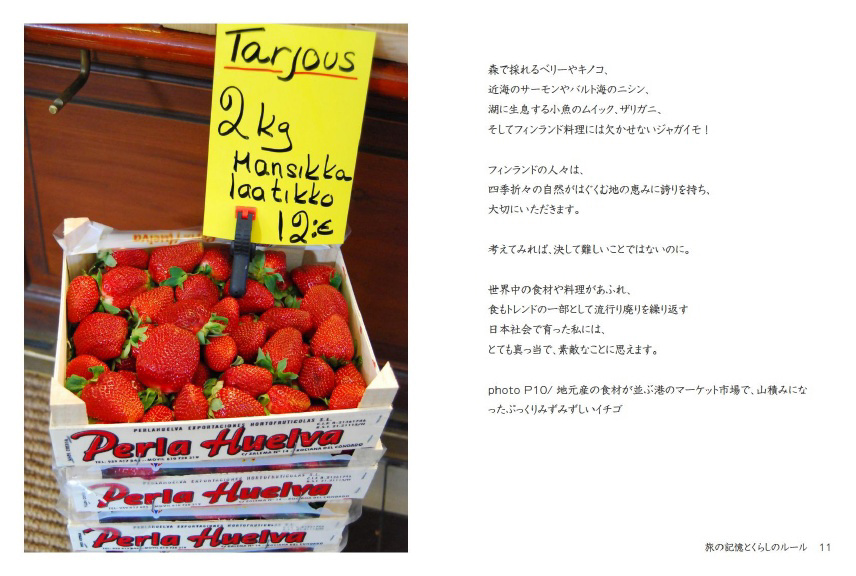 Tarjous
2kg
Mansikka
laatikko
12:€
PERLAHUELVA EXPORTACIONES HORTOFRUTICOLAS S.L.
Perla Huelva
Perla Huelva
Perla Huelva
森で採れるベリーやキノコ、
近海のサーモンやバルト海のニシン、
湖に生息する小魚のムイック、ザリガニ、
そしてフィンランド料理には欠かせないジャガイモ！
フィンランドの人々は、
四季折々の自然がはぐくむ地の恵みに誇りを持ち、
大切にいただきます。
考えてみれば、決して難しいことではないのに。
世界中の食材や料理があふれ、
食もトレンドの一部として流行り廃りを繰り返す
日本社会で育った私には、
とても真っ当で、素敵なことに思えます。
photo P10/ 地元産の食材が並ぶ港のマーケット市場で、山積みにな
ったぷっくりみずみずしいイチゴ
旅の記憶とくらしのルール 11